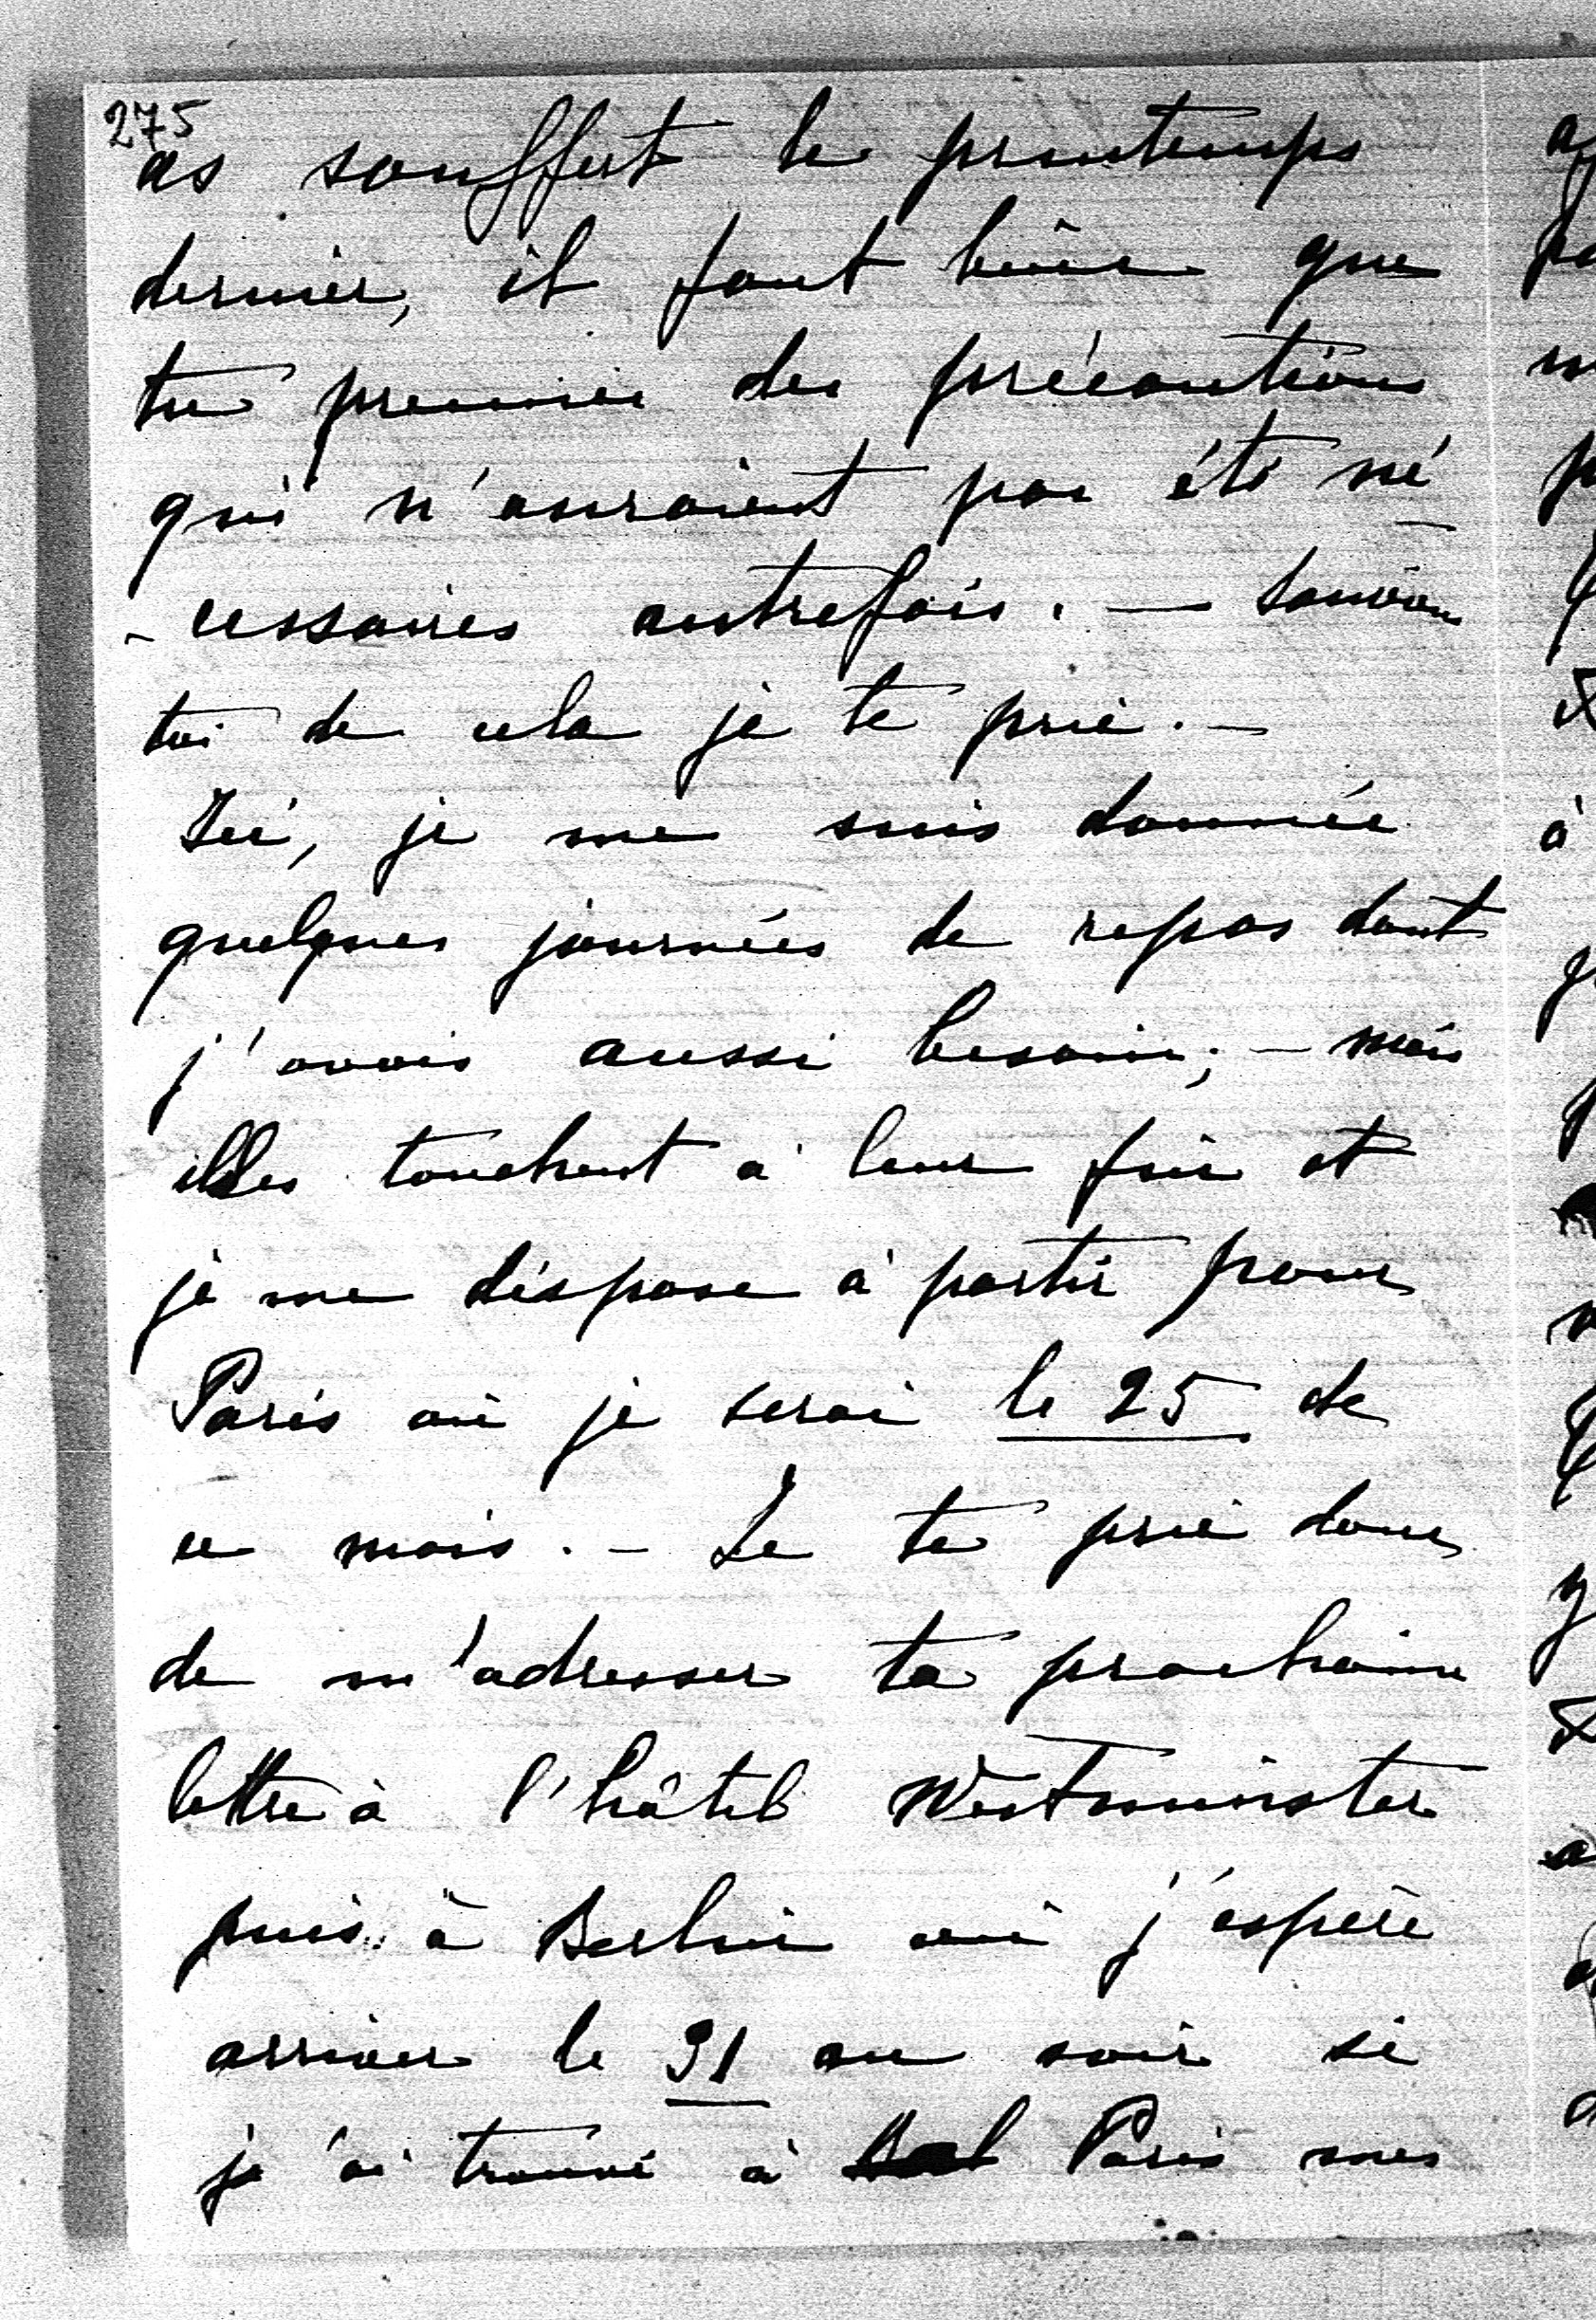 275
as souffert le printemps
dernier, il faut bien que
tu prennes des précautions
qui n'auraient pas été né
- cessaires autrefois. — Souviens
toi de cela je te prie. —
Ici, je me suis donnée
quelques journées de repos dont
j'avais aussi besoin; — mais
elles touchent à leur fin et
je me dispose à partir pour
Paris où je serai le 25 de
ce mois. — Je te prie donc
de m'adresser ta prochaine
lettre à l'hôtel Westminster
puis à Berlin où j'espère
arriver le 31 au soir si
j'ai trouvé à Paris mes